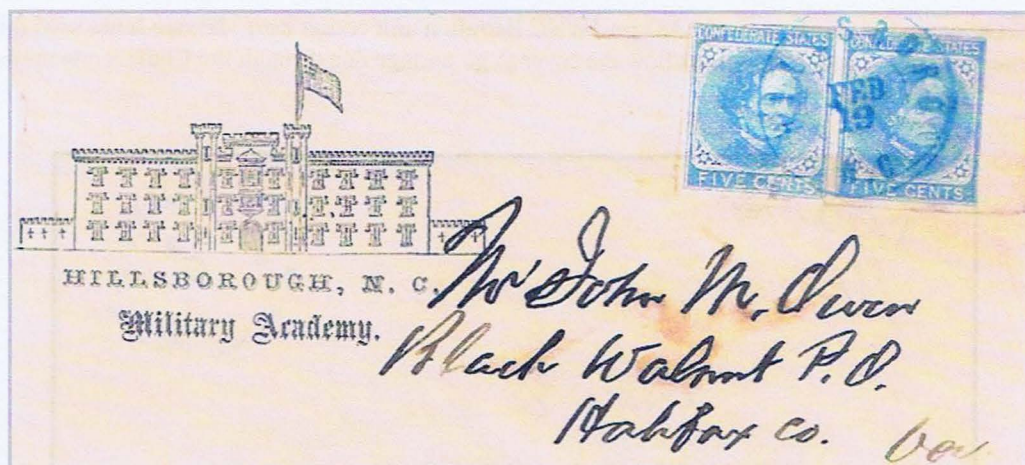 CONFEDERATE STATES
FIVE CENTS
CONFEDERATE STATES
FIVE CENTS
FEB
19
N. C.
HILLSBOROUGH, N. C.
Military Academy.
Mr John M. Owen
Black Walnut P.O.
Halifax co.